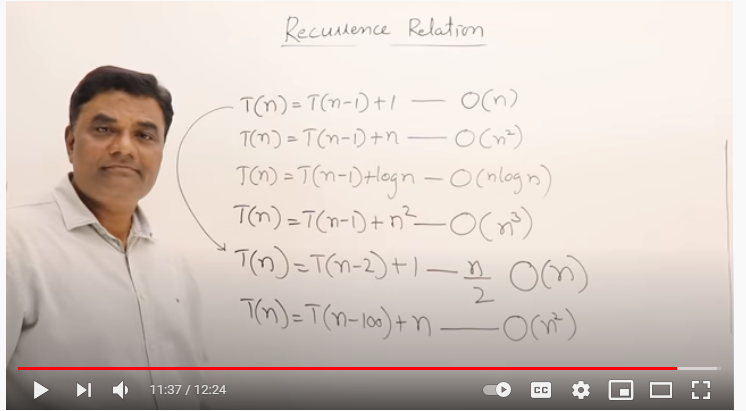 Recurrence Relation
T(n) = T(n-1) + 1 — O(n)
T(n) = T(n-1) + n — O(n²)
T(n) = T(n-1) + log n — O(n log n)
T(n) = T(n-1) + n² — O(n³)
T(n) = T(n-2) + 1 — n/2 O(n)
T(n) = T(n-100) + n — O(n²)
11:37 / 12:24
CC